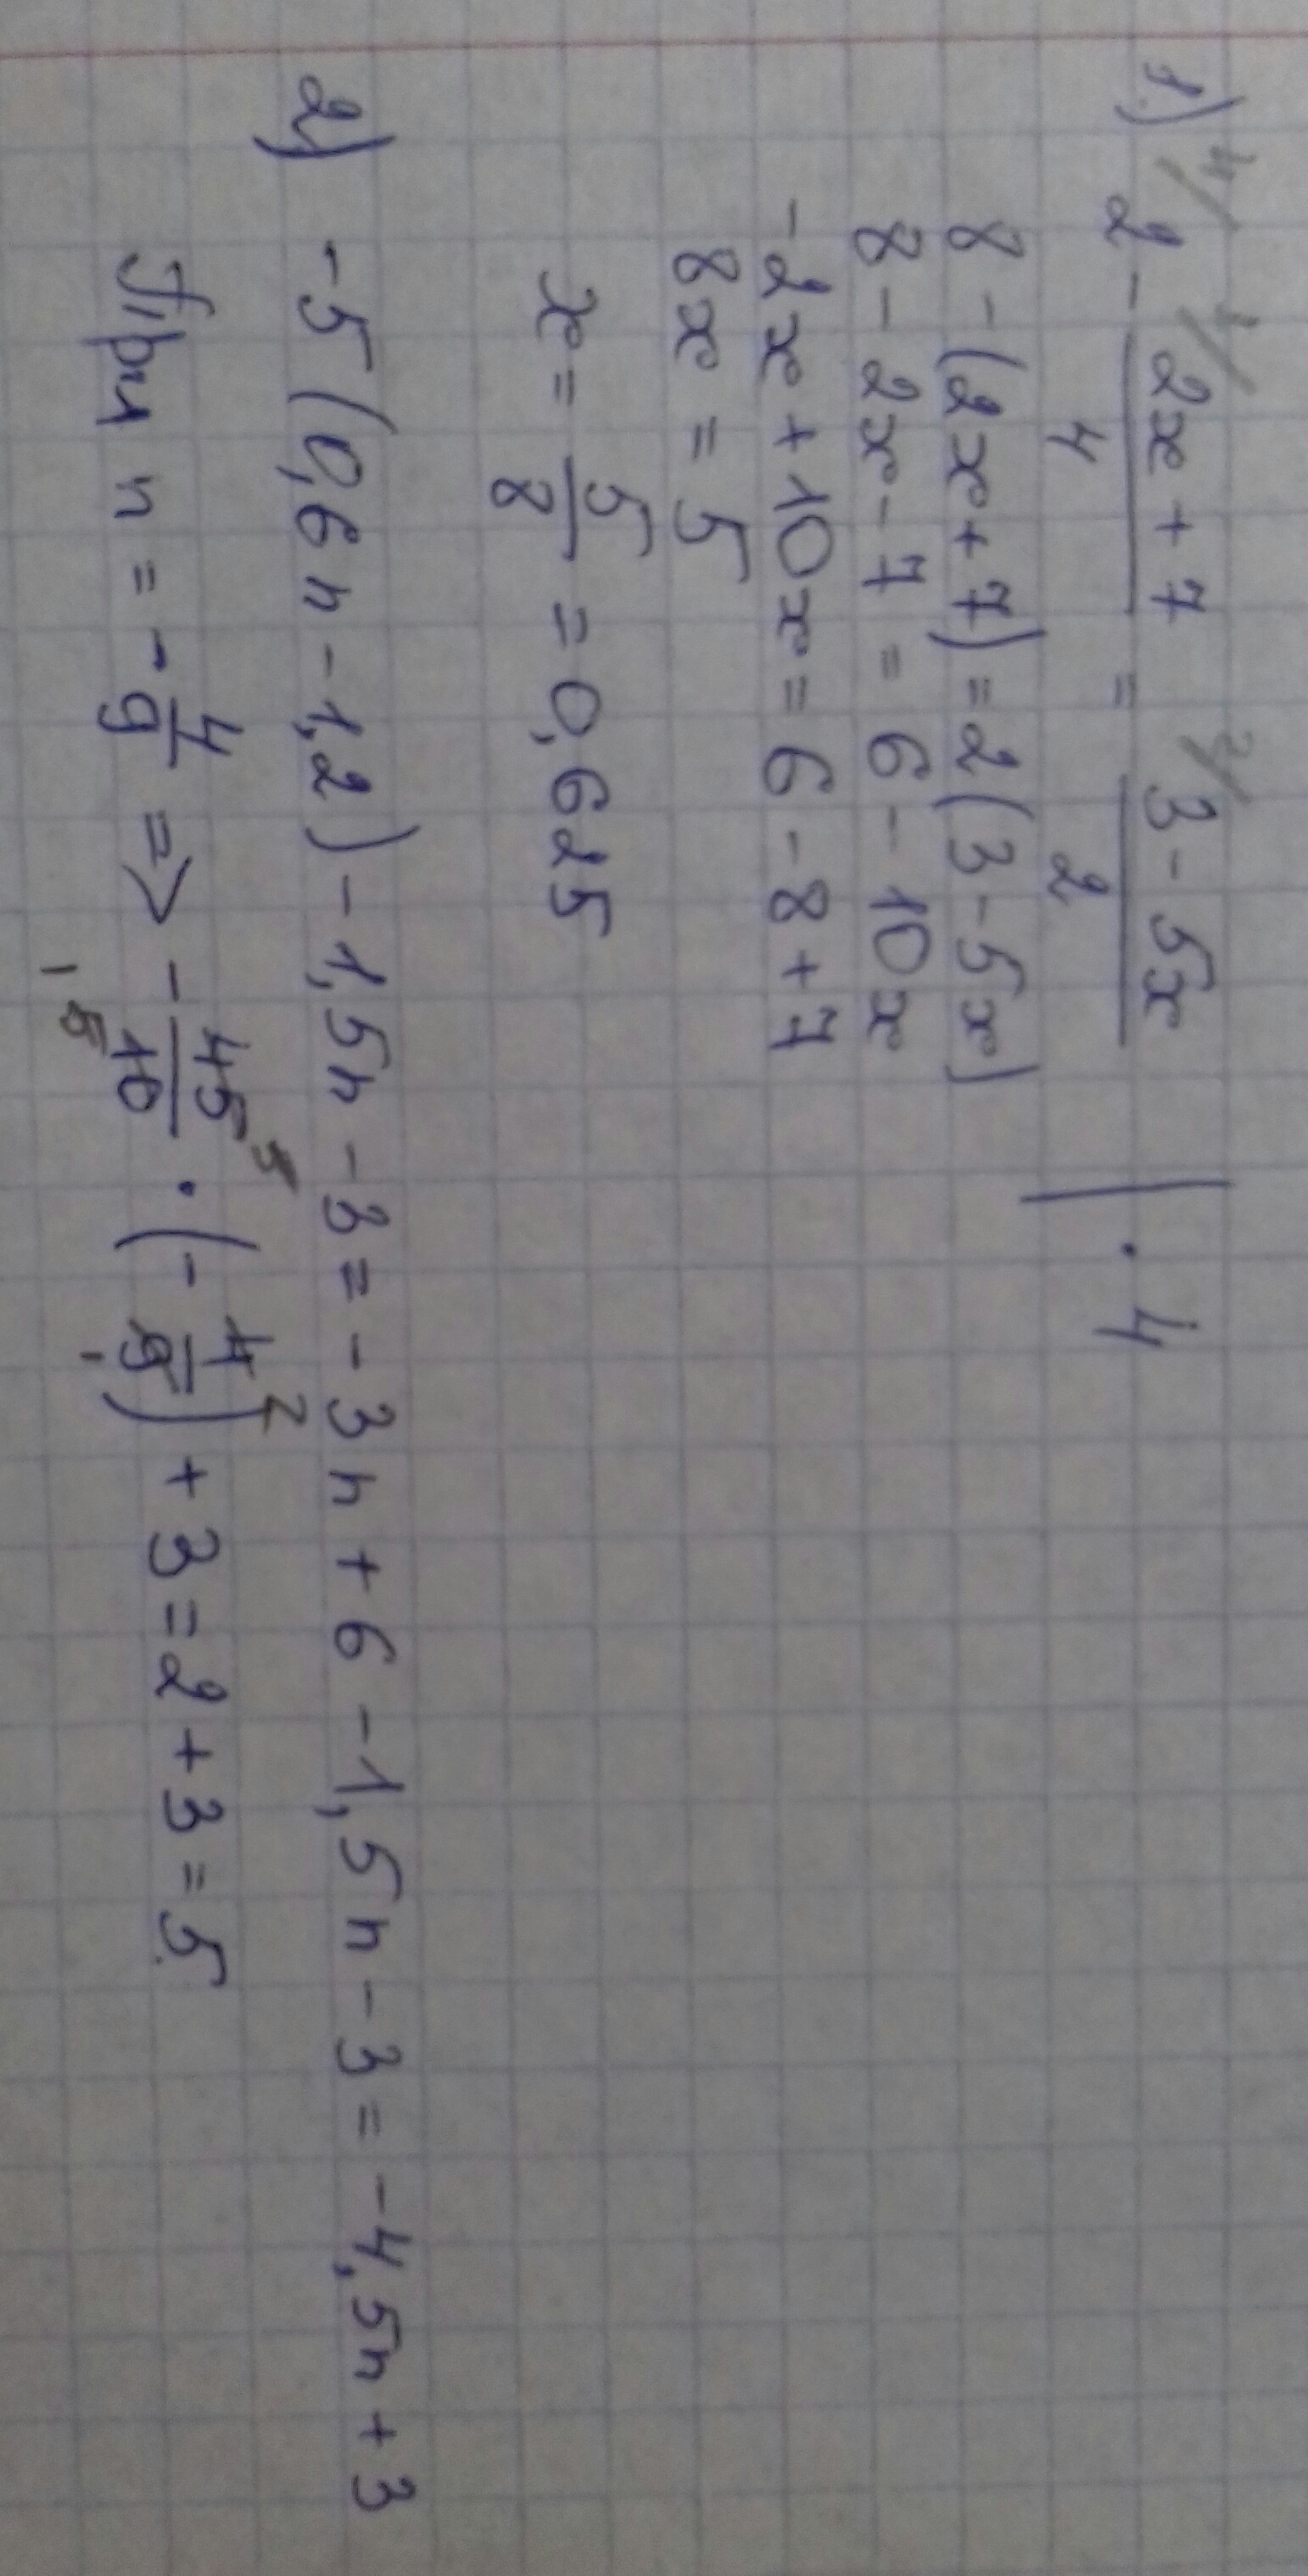 1.) 4/ 2 - 1/ (2x + 7)/4 = 2/ (3 - 5x)/2 | · 4
8 - (2x + 7) = 2(3 - 5x)
8 - 2x - 7 = 6 - 10x
-2x + 10x = 6 - 8 + 7
8x = 5
x = 5/8 = 0,625
2) -5(0,6n - 1,2) - 1,5n - 3 = -3n + 6 - 1,5n - 3 = -4,5n + 3
При n = -4/9 => -45/10 · (-4/9) + 3 = 2 + 3 = 5